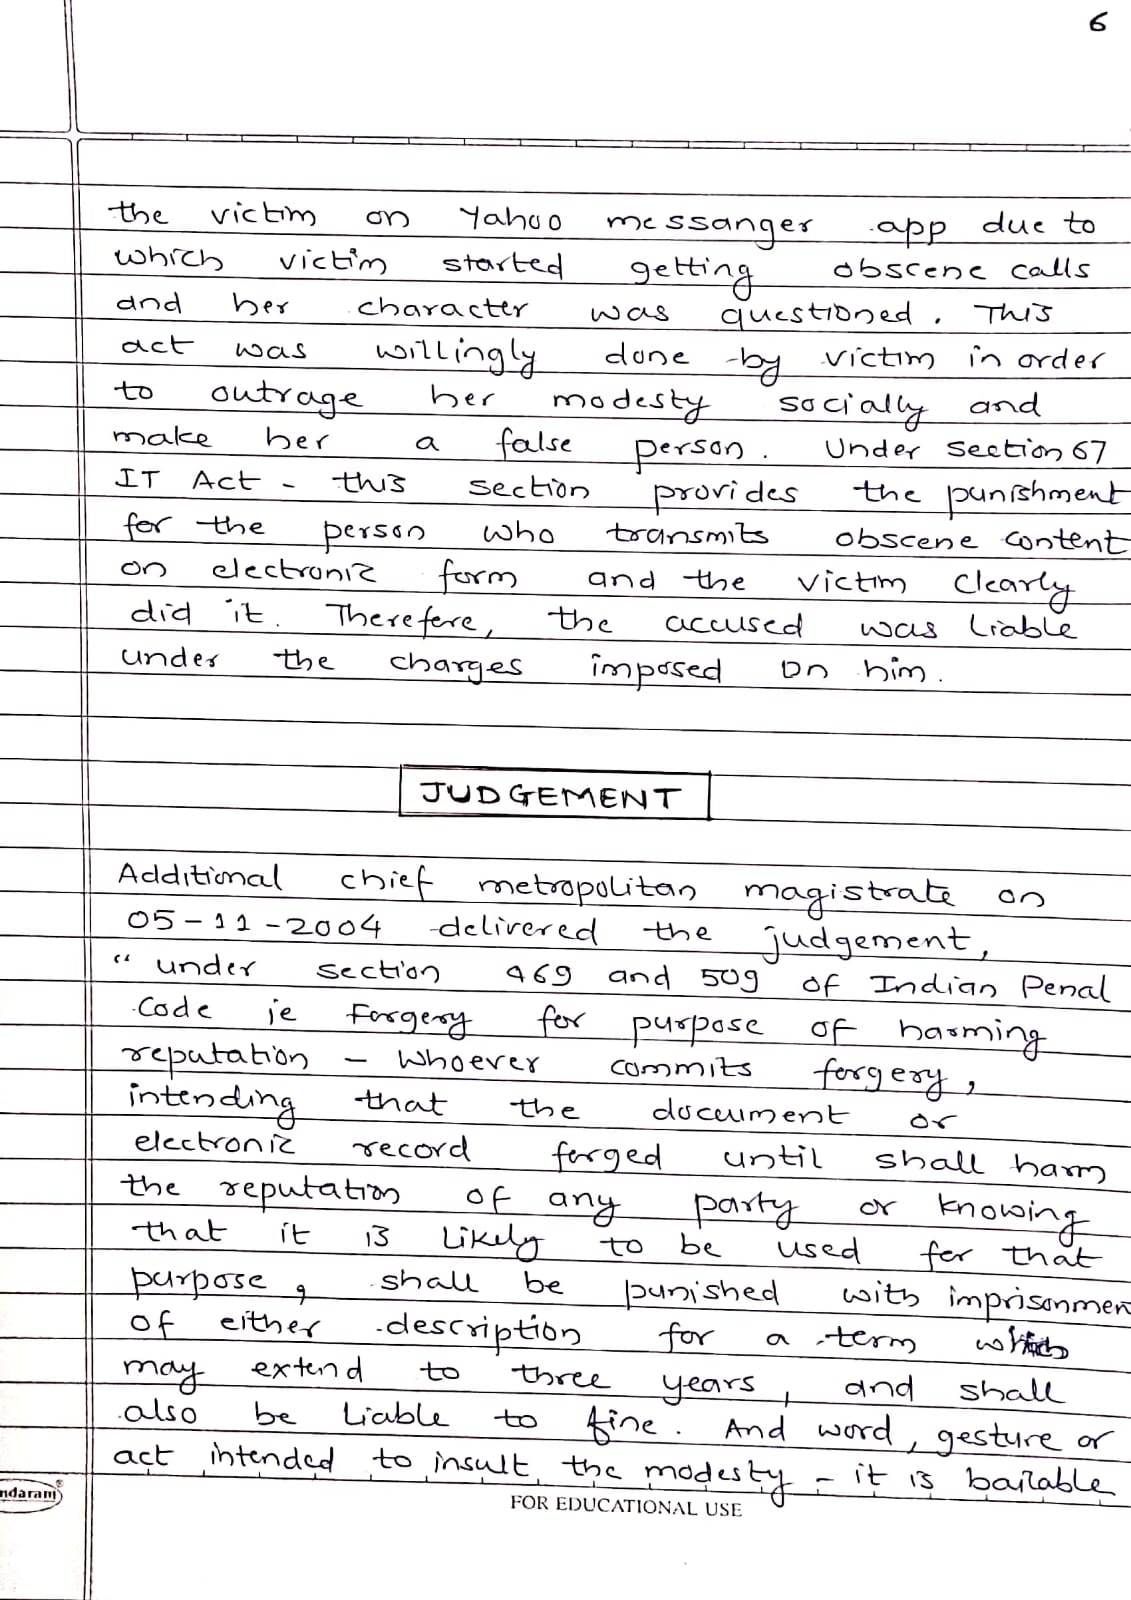 6
the victim on Yahoo messanger app due to
which victim started getting obscene calls
and her character was questioned. This
act was willingly done by victim in order
to outrage her modesty socially and
make her a false person. Under section 67
IT Act - this section provides the punishment
for the person who transmits obscene content
on electronic form and the victim clearly
did it. Therefere, the accused was liable
under the charges imposed on him.
JUDGEMENT
Additional chief metropolitan magistrate on
05-11-2004 delivered the judgement,
“ under section 469 and 509 of Indian Penal
Code ie Forgery for purpose of harming
reputation - Whoever commits forgery,
intending that the document or
electronic record forged until shall harm
the reputation of any party or knowing
that it is likely to be used for that
purpose, shall be punished with imprisonmen
of either description for a term which
may extend to three years, and shall
also be liable to fine. And word, gesture or
act intended to insult the modesty - it is bailable
ndaram®
FOR EDUCATIONAL USE